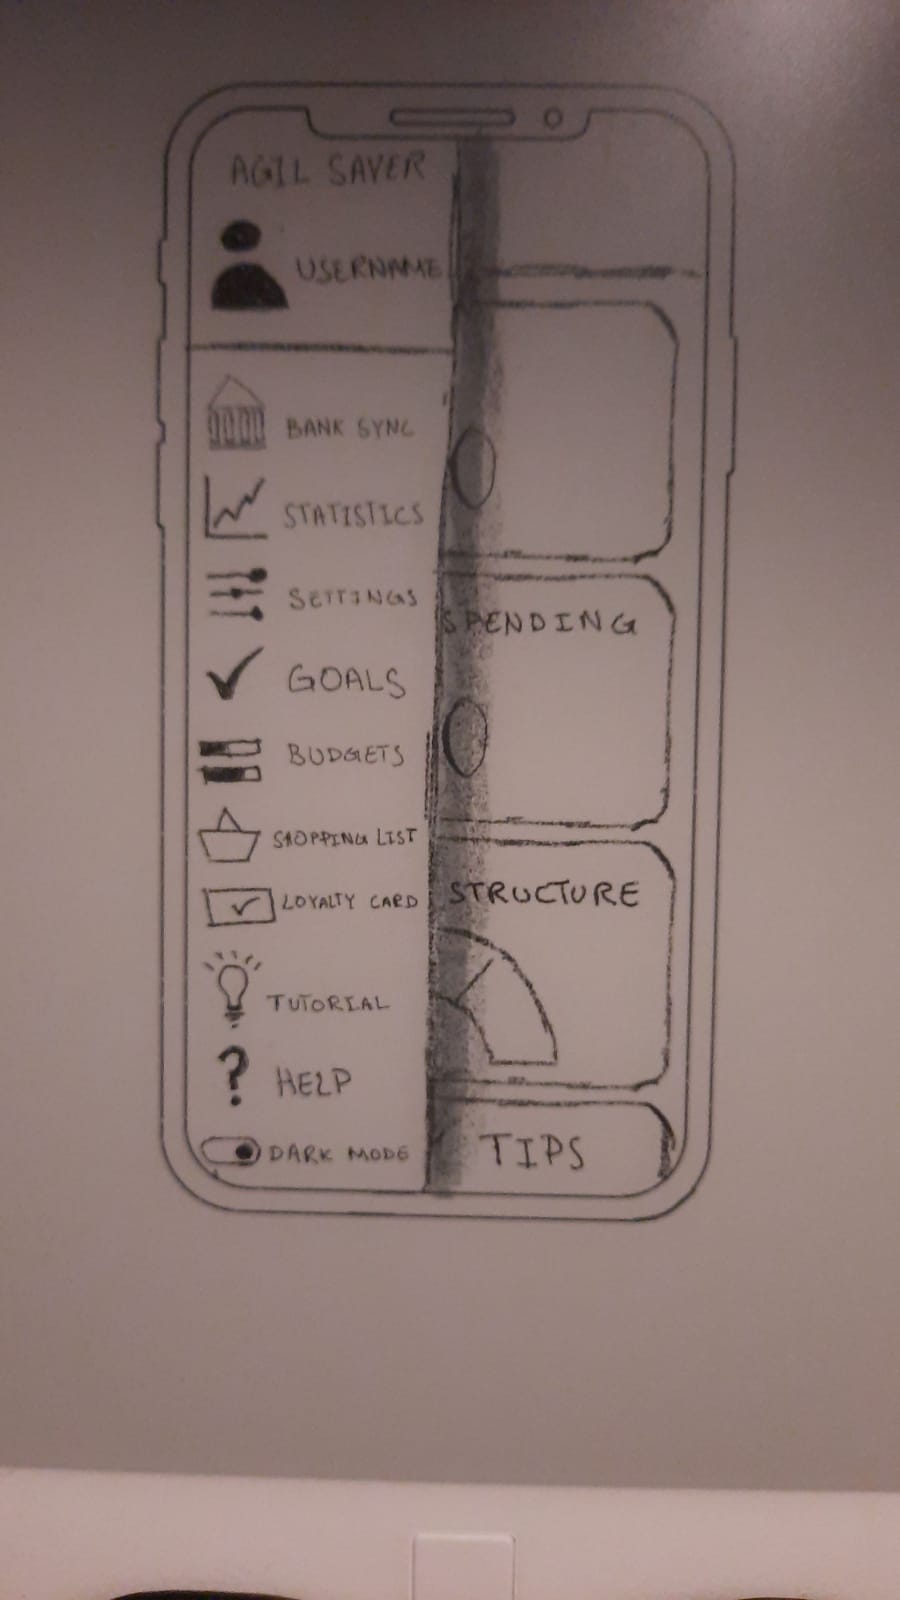 AGIL SAVER
USERNAME
BANK SYNC
STATISTICS
SETTINGS
GOALS
BUDGETS
SHOPPING LIST
LOYALTY CARD
TUTORIAL
? HELP
DARK MODE
SPENDING
STRUCTURE
TIPS